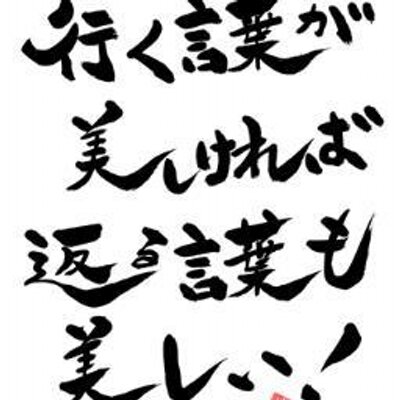 行く言葉が
美しければ
返る言葉も
美しい!